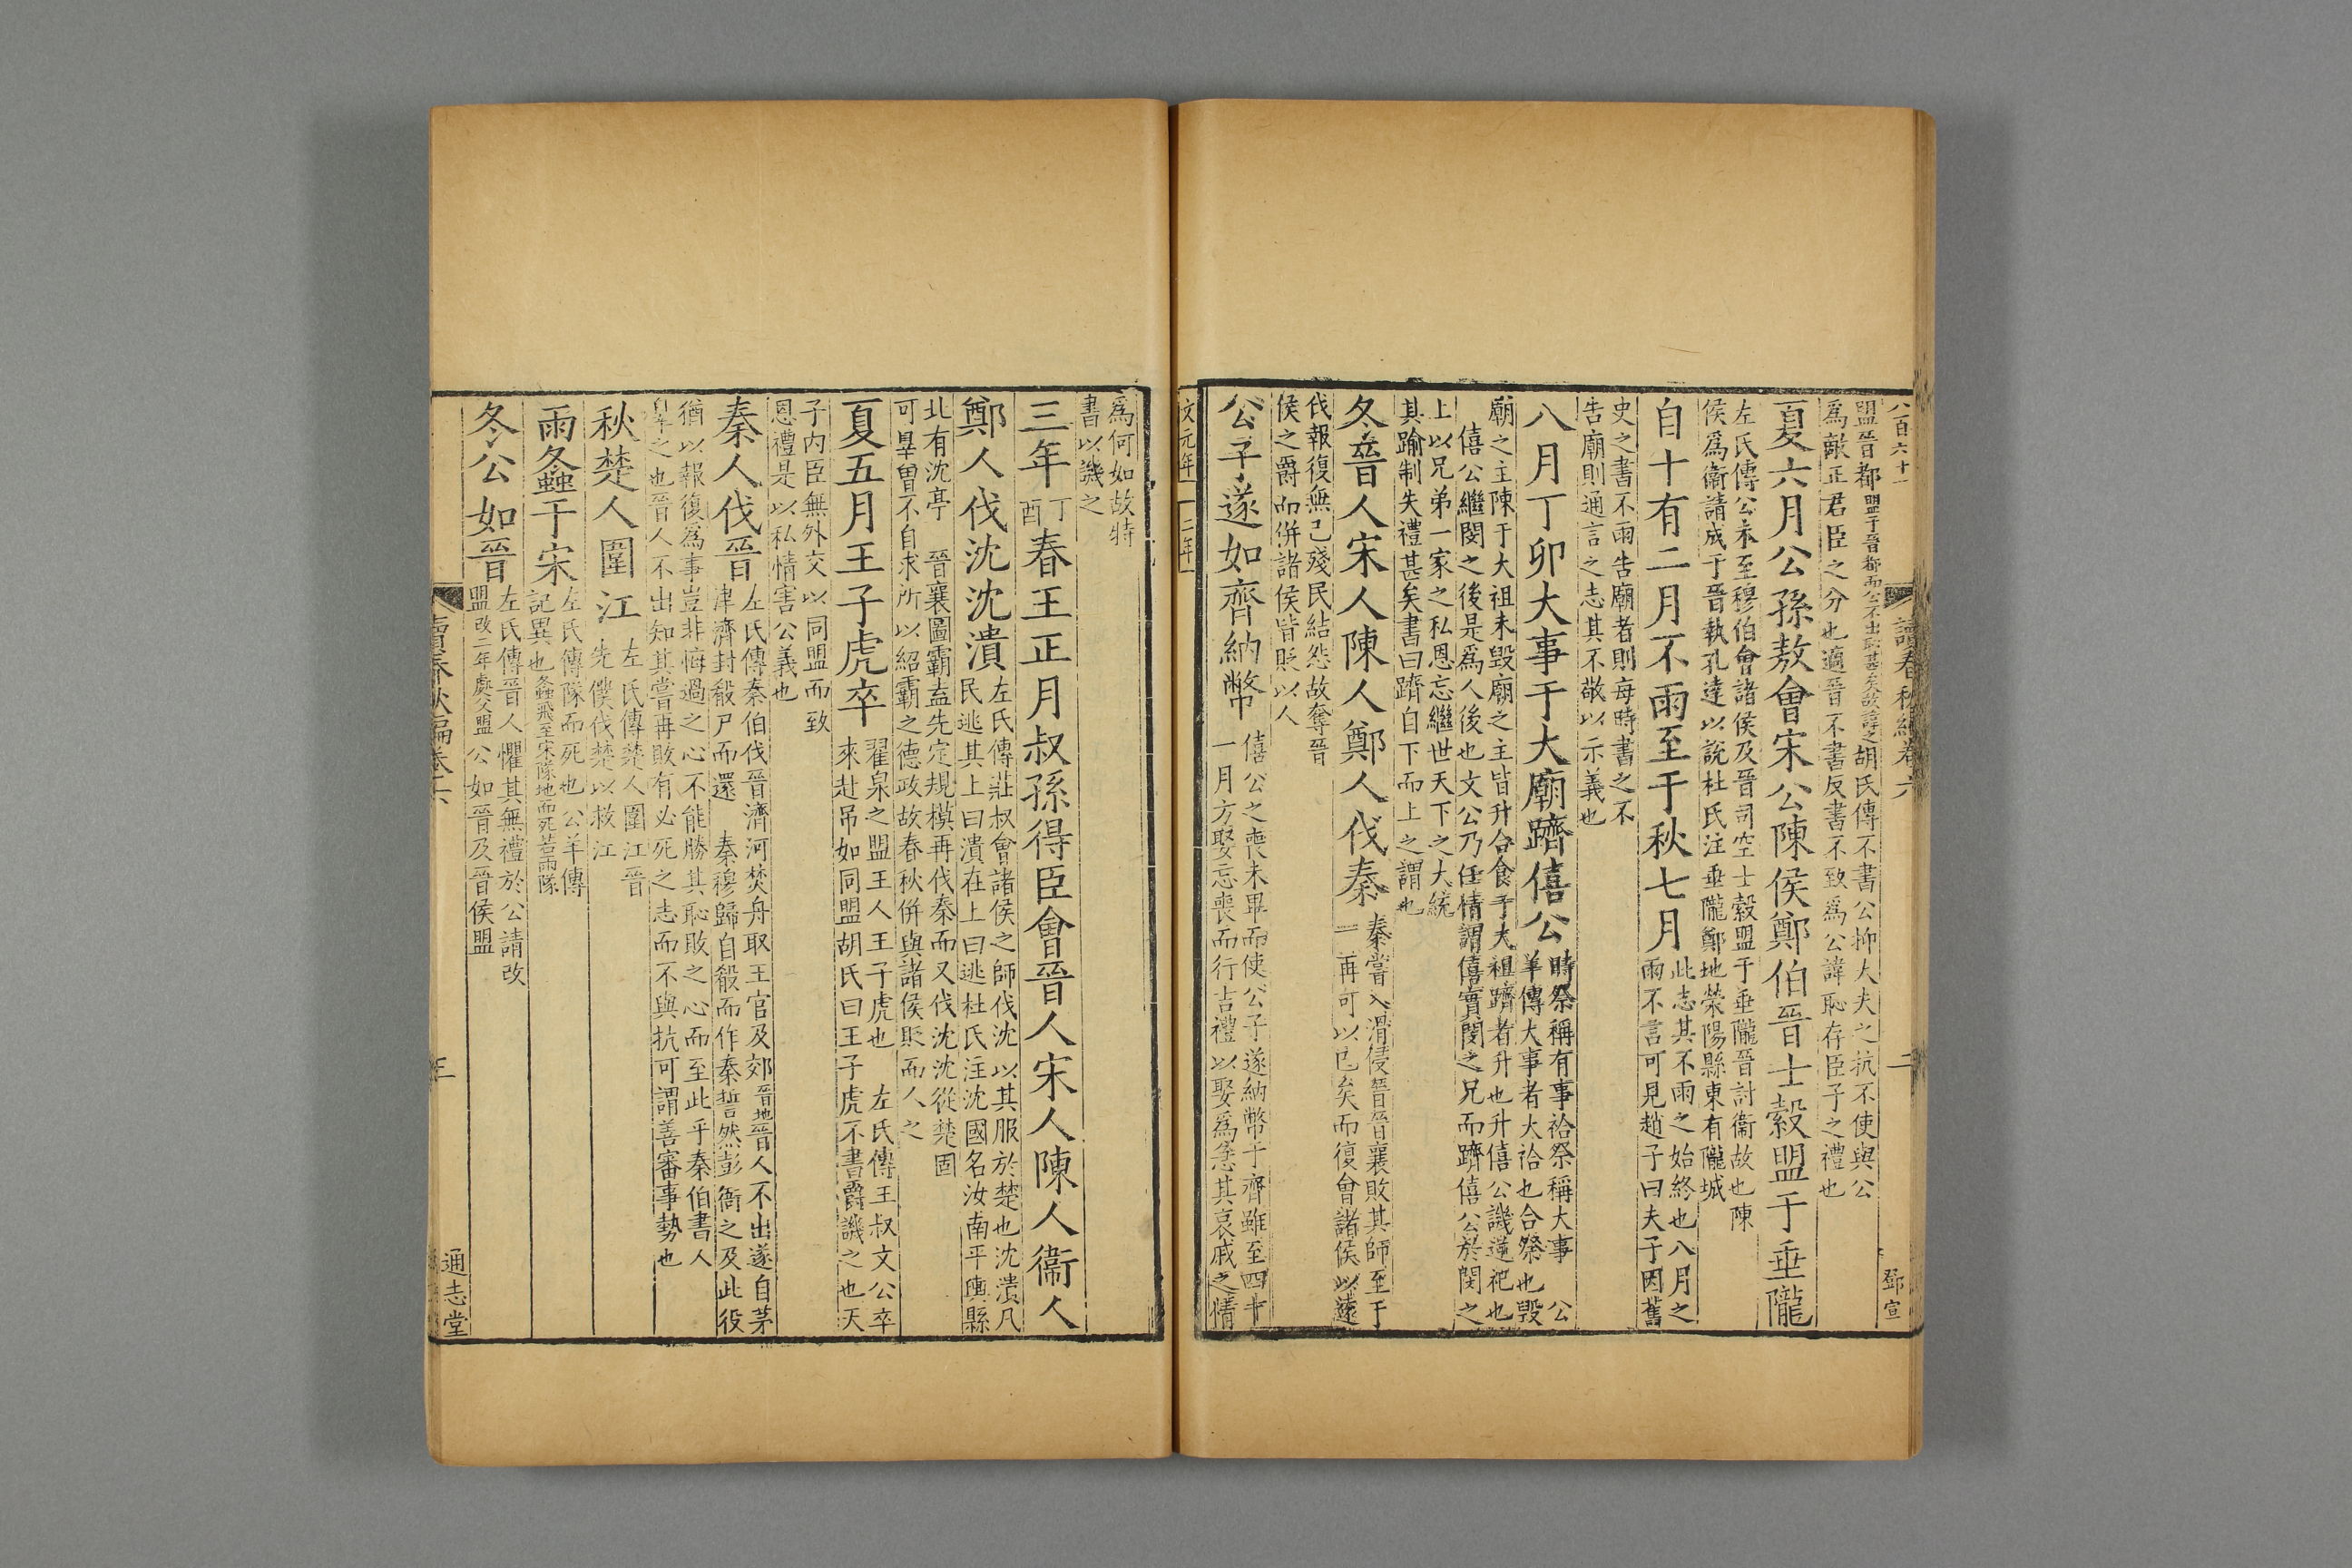 八百六十一
讀春秋編卷六
二
鄧宣
盟晉都盟于晉都而公不出恥甚矣故諱之胡氏傳不書公抑大夫之抗不使與公
爲敵正君臣之分也適晉不書反書不致爲公諱恥存臣子之禮也
夏六月公孫敖會宋公陳侯鄭伯晉士縠盟于垂隴
左氏傳公未至穆伯會諸侯及晉司空士縠盟于垂隴晉討衞故也陳
侯爲衞請成于晉執孔達以說杜氏注垂隴鄭地滎陽縣東有隴城
自十有二月不雨至于秋七月
此志其不雨之始終也八月之
雨不言可見趙子曰夫子因舊
史之書不雨告廟者則每時書之不
告廟則通言之志其不敬以示義也
八月丁卯大事于大廟躋僖公
時祭稱有事祫祭稱大事 公
羊傳大事者大祫也合祭也毀
廟之主陳于大祖未毀廟之主皆升合食于大祖躋者升也升僖公譏逆祀也
僖公繼閔之後是爲人後也文公乃任情謂僖實閔之兄而躋僖公於閔之
上以兄弟一家之私恩忘繼世天下之大統
其踰制失禮甚矣書曰躋自下而上之謂也
冬晉人宋人陳人鄭人伐秦
秦嘗入滑侵晉晉襄敗其師至于
一再可以已矣而復會諸侯以遠
伐報復無已殘民結怨故奪晉
侯之爵而併諸侯皆貶以人
公子遂如齊納幣
僖公之喪未畢而使公子遂納幣于齊雖至四十
一月方娶忘喪而行吉禮以娶爲急其哀戚之情
文元年 二年
爲何如故特
書以譏之
三年丁酉春王正月叔孫得臣會晉人宋人陳人衞人
鄭人伐沈沈潰
左氏傳莊叔會諸侯之師伐沈以其服於楚也沈潰凡
民逃其上曰潰在上曰逃杜氏注沈國名汝南平輿縣
北有沈亭 晉襄圖霸盍先定規模再伐秦而又伐沈沈從楚固
可辠曽不自求所以紹霸之德政故春秋併與諸侯貶而人之
夏五月王子虎卒
翟泉之盟王人王子虎也 左氏傳王叔文公卒
來赴吊如同盟胡氏曰王子虎不書爵譏之也天
子内臣無外交以同盟而致
恩禮是以私情害公義也
秦人伐晉
左氏傳秦伯伐晉濟河焚舟取王官及郊晉地晉人不出遂自茅
津濟封殽尸而還 秦穆歸自殽而作秦誓然彭衙之及此役
猶以報復爲事豈非悔過之心不能勝其恥敗之心而至此乎秦伯書人
辠之也晉人不出知其嘗再敗有必死之志而不與抗可謂善審事勢也
秋楚人圍江
左氏傳楚人圍江晉
先僕伐楚以救江
雨螽于宋
左氏傳隊而死也公羊傳
記異也螽飛至宋隊地而死若雨隊
冬公如晉
左氏傳晉人懼其無禮於公請改
盟改二年處父盟公如晉及晉侯盟
讀春秋編卷六
三
通志堂